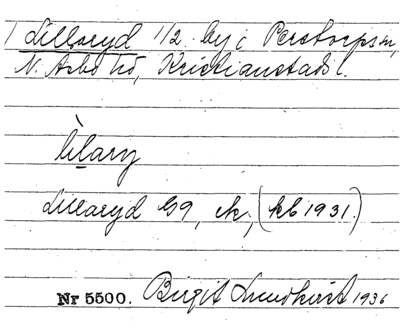 1 Lillaryd 1/2 by i Perstorps sn,
N. Åsbo hd, Kristianstads l.
lìlary
Lillaryd G9, ek, (kb 1931.)
Nr 5500. Birgit Lundkvist 1936